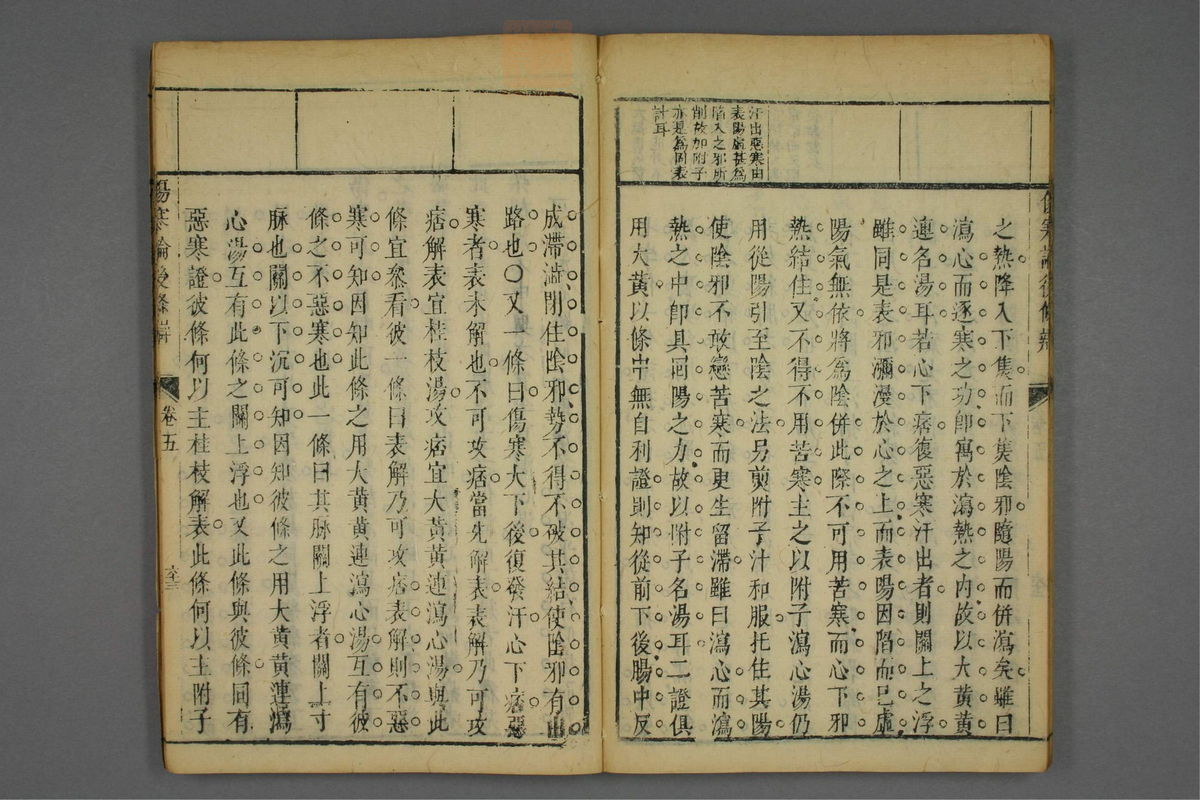 汗出惡寒由
表陽虛甚為
陷入之邪所
削故加附子
亦是為固表
計耳
之熱降入下隻而下隻陰邪隨陽而併瀉矣雖曰
瀉心而逐寒之功即寓於瀉熱之内故以大黃黃
連名湯耳若心下痞復惡寒汗出者則關上之浮
雖同是表邪瀰漫於心之上而表陽因陷而已虛
陽氣無依將為陰併此際不可用苦寒而心下邪
熱結住又不得不用苦寒主之以附子瀉心湯仍
用從陽引至陰之法另煎附子汁和服托住其陽
使陰邪不敢戀苦寒而更生留滯雖曰瀉心而瀉
熱之中卽具回陽之力故以附子名湯耳二證俱
用大黃以條中無自利證則知從前下後腸中反
成滯澁閉住陰邪勢不得不破其結使陰邪有出
路也〇又一條曰傷寒大下後復發汗心下痞惡
寒者表未解也不可攻痞當先解表表解乃可攻
痞解表宜桂枝湯攻痞宜大黃黃連瀉心湯與此
條宜叅看彼一條曰表解乃可攻痞表解則不惡
寒可知因知此條之用大黃黃連瀉心湯互有彼
條之不惡寒也此一條曰其脉關上浮者關上寸
脉也關以下沉可知因知彼條之用大黃黃連瀉
心湯互有此條之關上浮也又此條與彼條同有
惡寒證彼條何以主桂枝解表此條何以主附子
傷寒論後條辨
卷五